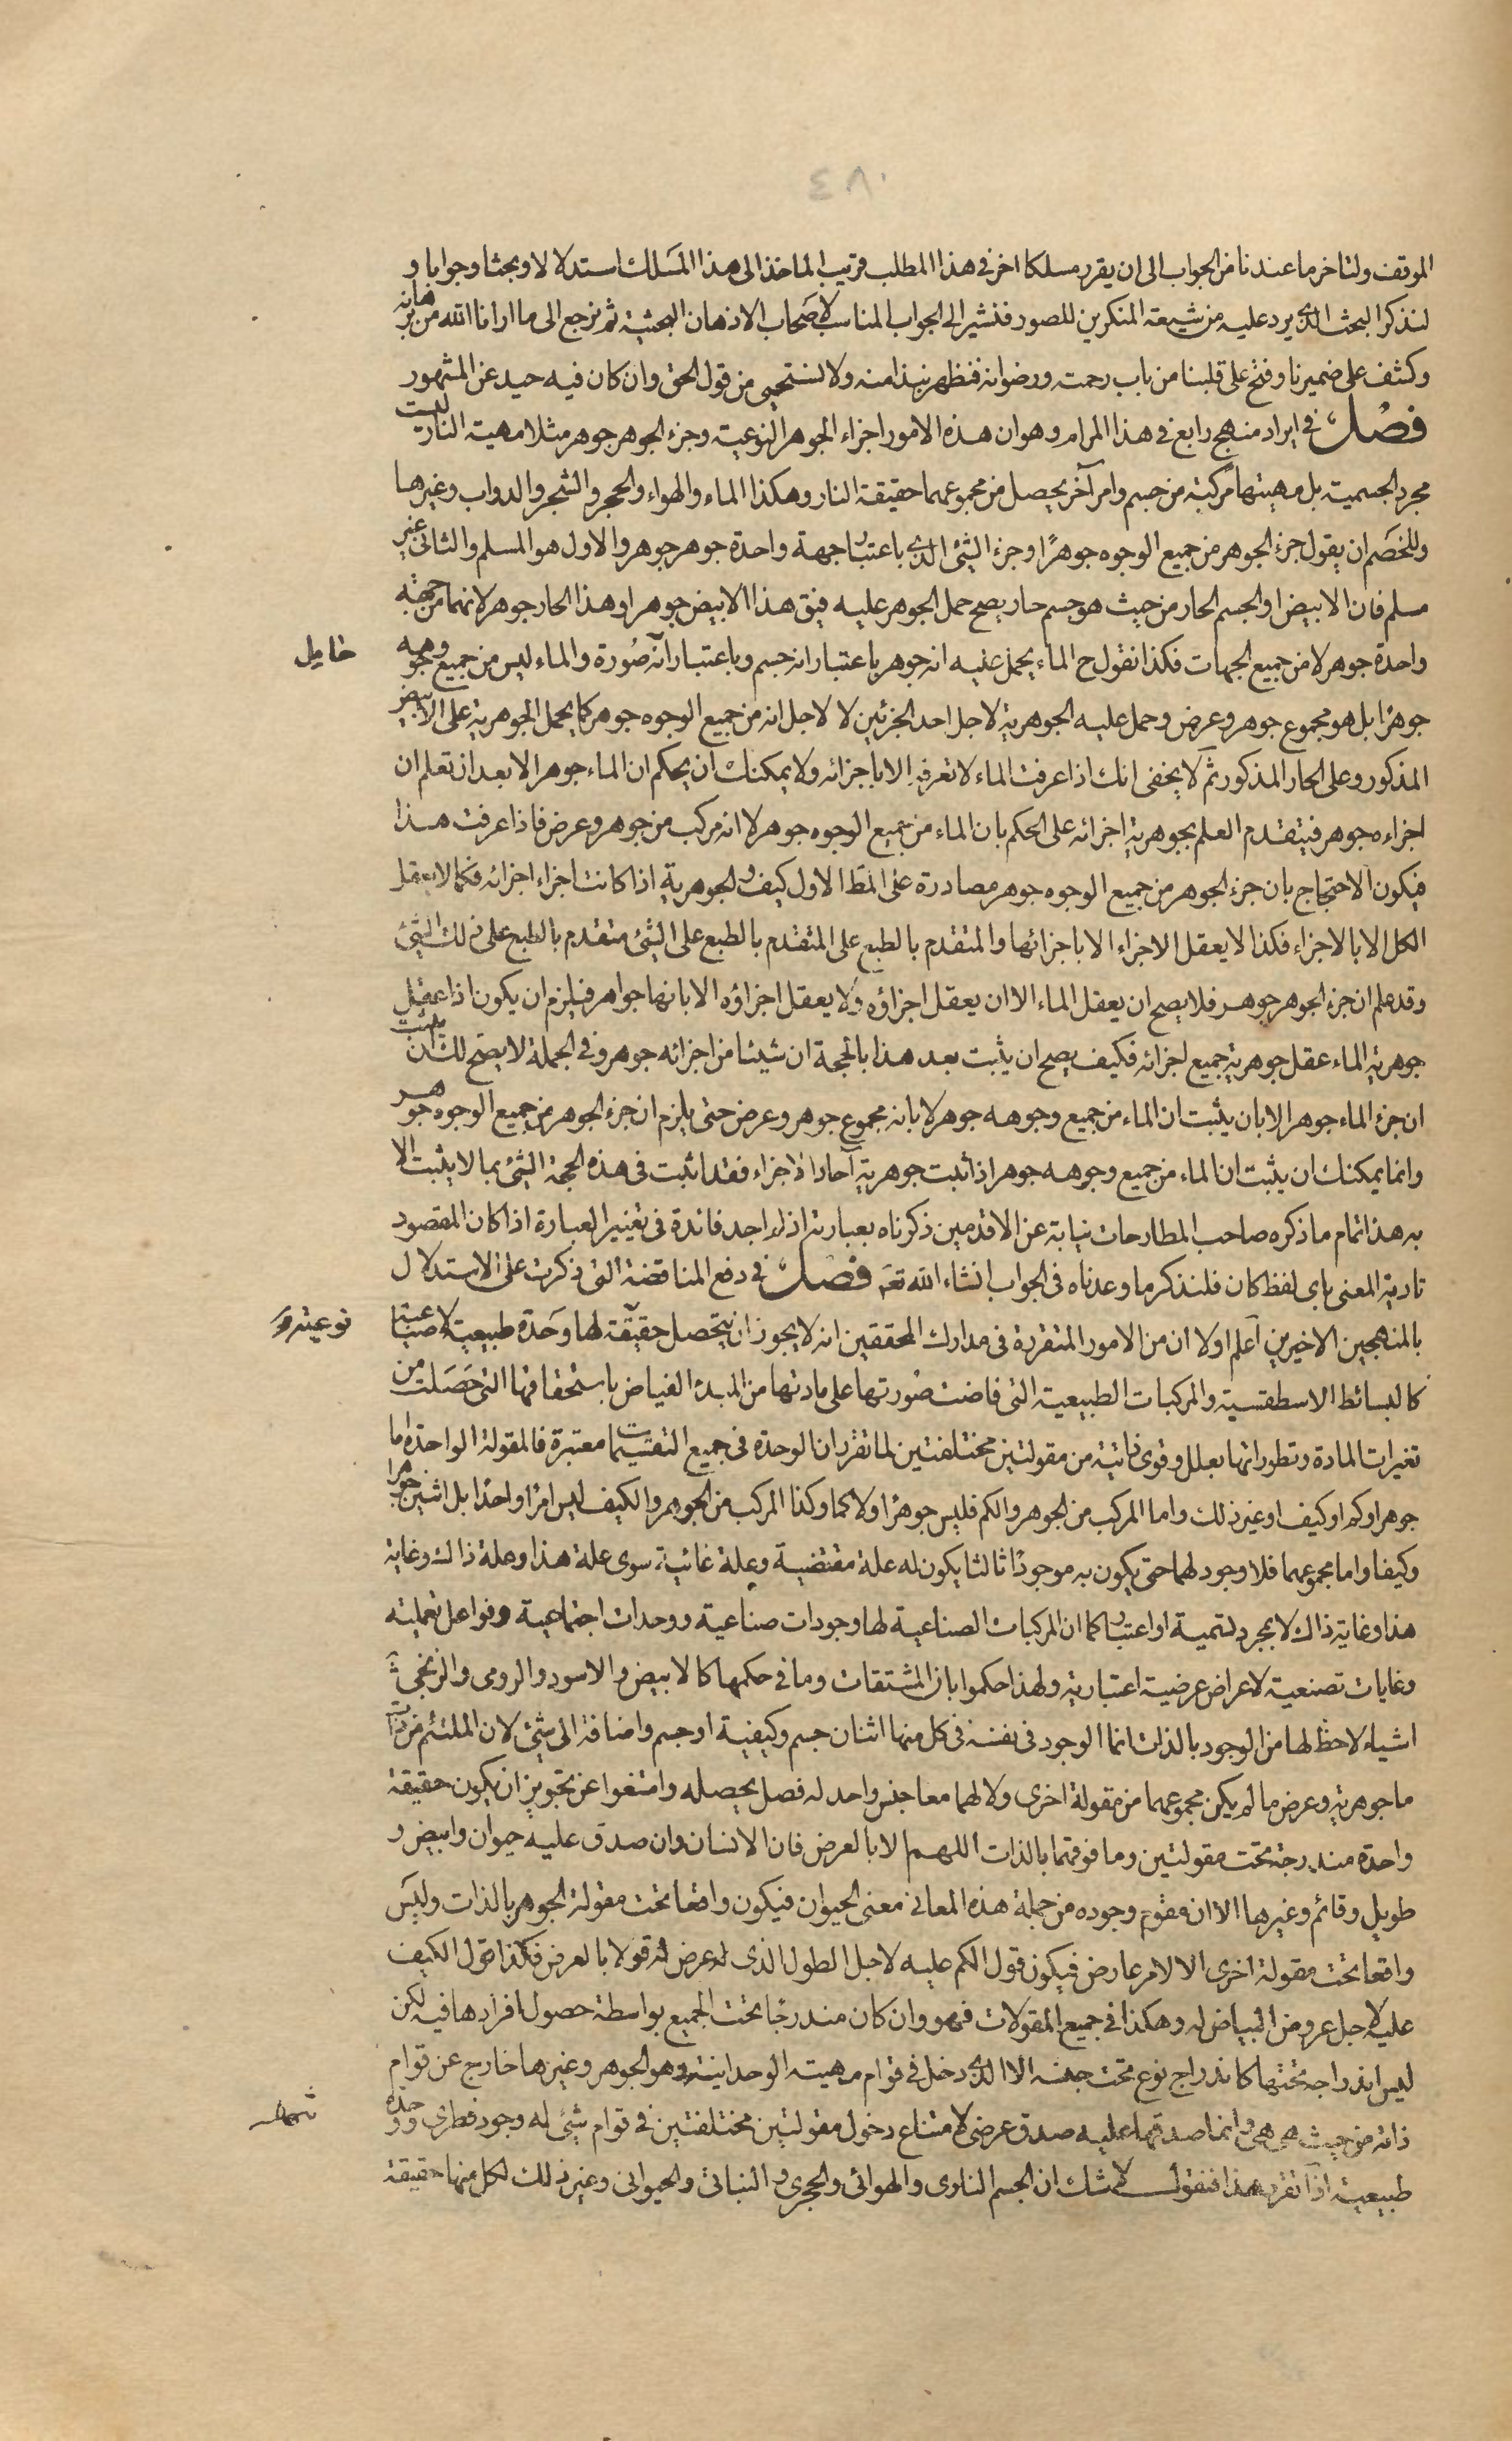 ٤٨٠
الموقف ولنؤخر ما عندنا من الجواب الى ان يقرر مسلكا اخر فى هذا المطلب قريب الماخذ الى هذا المسلك استدلالا وبحثا وجوابا و
لنذكر البحث الذى يرد عليه من شيعة المنكرين للصور فنشير الى الجواب المناسب لاصحاب الاذهان البحثية ثم نرجع الى ما ارانا الله من برهانه
وكشف على ضميرنا وفتح على قلبنا من باب رحمته ورضوانه فنظهر نبذا منه ولا نستحيى من قول الحق وان كان فيه حيد عن المشهور
فصل فى ايراد منهج رابع فى هذا المرام وهو ان هذه الامور اجزاء الجوهر النوعية وجزء الجوهر جوهر مثلا مهية النار ليست
مجرد الجسمية بل مهيتها مركبة من جسم وامر آخر يحصل من مجموعهما حقيقة النار وهكذا الماء والهواء والحجر والشجر والدواب وغيرها
وللخصم ان يقول جزء الجوهر من جميع الوجوه جوهرًا وجزء الشئ الذى باعتبار جهة واحدة جوهر جوهر والاول هو المسلم والثانى غير
مسلم فان الابيض او الجسم الحار من حيث هو جسم حار يصح حمل الجوهر عليه فيق هذا الابيض جوهر او هذا الحار جوهر لانهما من جهة
واحدة جوهر لا من جميع الجهات فكذا نقول ح الماء يحمل عليه انه جوهر باعتبار انه جسم وباعتبار آنه صورة والماء ليس من جميع وجوهه
جوهرًا بل هو مجموع جوهر وعرض وحمل عليه الجوهرية لاجل احد الجزئين لا لاجل انه من جميع الوجوه جوهر كما يحمل الجوهرية على الابيض
المذكور وعلى الحار المذكور ثم لا يخفى انك اذا عرفت الماء لا تعرفه الا باجزائه ولا يمكنك ان يحكم ان الماء جوهر الا بعد ان تعلم ان
اجزاءه جوهر فيتقدم العلم بجوهرية اجزائه على الحكم بان الماء من جميع الوجوه جوهر لا انه مركب من جوهر وعرض فاذا عرفت هذا
فيكون الاحتجاج بان جزء الجوهر من جميع الوجوه جوهر مصادرة على المط الاول كيف والجوهرية اذا كانت اجزاء اجزائه فكما لا يعقل
الكل الا بالاجزاء فكذا لا يعقل الاجزاء الا باجزائها والمتقدم بالطبع على المتقدم بالطبع على الشئ متقدم بالطبع على ذلك الشئ
وقد علم ان جزء الجوهر جوهر فلا يصح ان يعقل الماء الا ان يعقل اجزاؤه ولا يعقل اجزاؤه الا بانها جواهر فيلزم ان يكون اذا عقل
جوهرية الماء عقل جوهرية جميع اجزائه فكيف يصح ان يثبت بعد هذا بالحجة ان شيئا من اجزائه جوهر وفى الجملة لا يصح لك ان يثبت
ان جزء الماء جوهر الا بان يثبت ان الماء من جميع وجوهه جوهر لا بانه مجموع جوهر وعرض حتى يلزم ان جزء الجوهر من جميع الوجوه جوهر
وانما يمكنك ان يثبت ان الماء من جميع وجوهه جوهر اذا ثبت جوهرية آحاد الاجزاء فقد اثبت فى هذه الحجة الشئ بما لا يثبت الا
به هذا تمام ما ذكره صاحب المطارحات نيابة عن الاقدمين ذكرناه بعبارته اذ لم اجد فائدة فى تغيير العبارة اذا كان المقصود
تادية المعنى باى لفظ كان فلنذكر ما وعدناه فى الجواب انشاء الله تعـ فصل فى دفع المناقضة التى ذكرت على الاستدلال
بالمنهجين الاخيرين آعلم اولا ان من الامور المتقررة فى مدارك المحققين انه لا يجوز ان يتحصل حقيقة لها وحدة طبيعية لا صناعية
كالبسائط الاسطقسية والمركبات الطبيعية التى فاضت صورتها على مادتها من المبدء الفياض باستحقاقها التى حصلت من
تغيرات المادة وتطوراتها بعلل وقوى ذاتية من مقولتين مختلفتين لما تقرر ان الوحدة فى جميع التقسيمات معتبرة فالمقولة الواحدة اما
جوهر او كم او كيف او غير ذلك واما المركب من الجوهر والكم فليس جوهرًا ولا كما وكذا المركب من الجوهر والكيف ليس امرًا واحدًا بل اثنين جوهرا
وكيفا واما مجموعهما فلا وجود لهما حتى يكون به موجودًا ثالثا يكون له علة مقتضية وعلة غائية سوى علة هذا وعلة ذاك وغاية
هذا وغاية ذاك لا بمجرد تسمية او اعتبار كما ان المركبات الصناعية لها وجودات صناعية ووحدات اجتماعية وفواعل تعملية
وغايات تصنعية لاعراض عرضية اعتبارية ولهذا حكموا بان المشتقات وما فى حكمها كالابيض والاسود والرومى والزنجى
اشياء لا حظ لها من الوجود بالذات انما الوجود فى نفسه فى كل منها اثنان جسم وكيفية او جسم واضافة الى شئ لان الملتئم من ذات
ما جوهرية وعرض ما لم يكن مجموعهما من مقولة اخرى ولا لهما معا جنس واحد له فصل يحصله وامتنعوا عن تجويز ان يكون حقيقة
واحدة مندرجة تحت مقولتين وما فوقهما بالذات اللهم الا بالعرض فان الانسان وان صدق عليه حيوان وابيض و
طويل وقائم وغيرها الا ان مقوم وجوده من جملة هذه المعانى معنى الحيوان فيكون واقعا تحت مقولة الجوهر بالذات وليس
واقعا تحت مقولة اخرى الا لامر عارض فيكون قول الكم عليه لاجل الطول الذى له عرض له قولا بالعرض فكذا قول الكيف
عليه لاجل عروض البياض له وهكذا فى جميع المقولات فهو وان كان مندرجًا تحت الجميع بواسطة حصول افرادها فيه لكن
ليس اندراجه تحتها كاندراج نوع تحت جنسه الا الذى دخل فى قوام مهيته الوحدانية وهو الجوهر وغيرها خارج عن قوام
ذاته من حيث هى هى وانما صدقها عليه صدق عرضى لامتناع دخول مقولتين مختلفتين فى قوام شئ له وجود فطرى ووحدة
طبيعية اذا تقرر هذا فنقول لا شك ان الجسم النارى والهوائى والحجرى والنباتى والحيوانى وغير ذلك لكل منها حقيقة